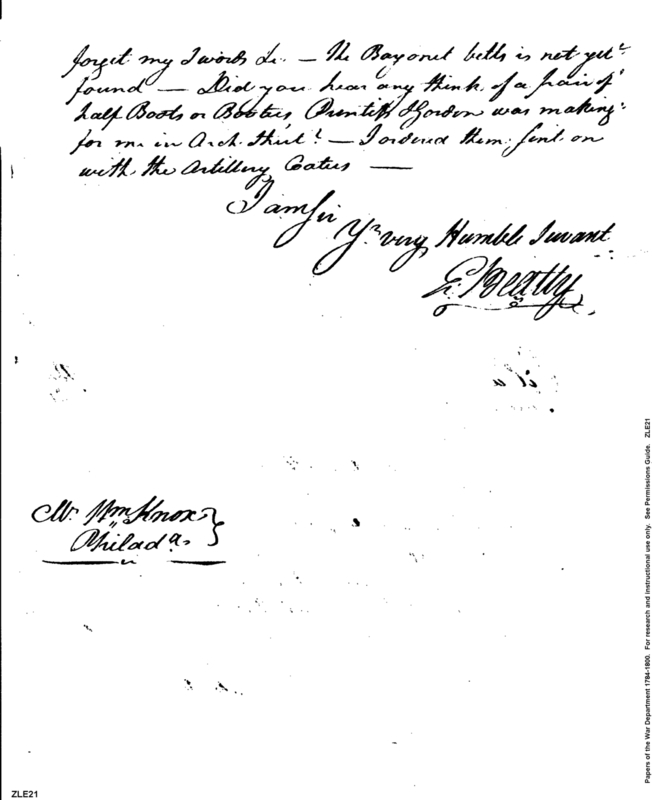 forget my Swords &c. — the Bayonet belts is not yet
found — Did you hear any think of a pair of
half Boots or Bootees Gordon was making
for me in Arch Street — I ordered them sent on
with the Artillery Coatees —
I am Sir
Yr. very Humble Servant
E. Beatty
Mr. Wm Knox
Philada.
Papers of the War Department 1784-1800. For research and instructional use only. See Permissions Guide. ZLE21
ZLE21